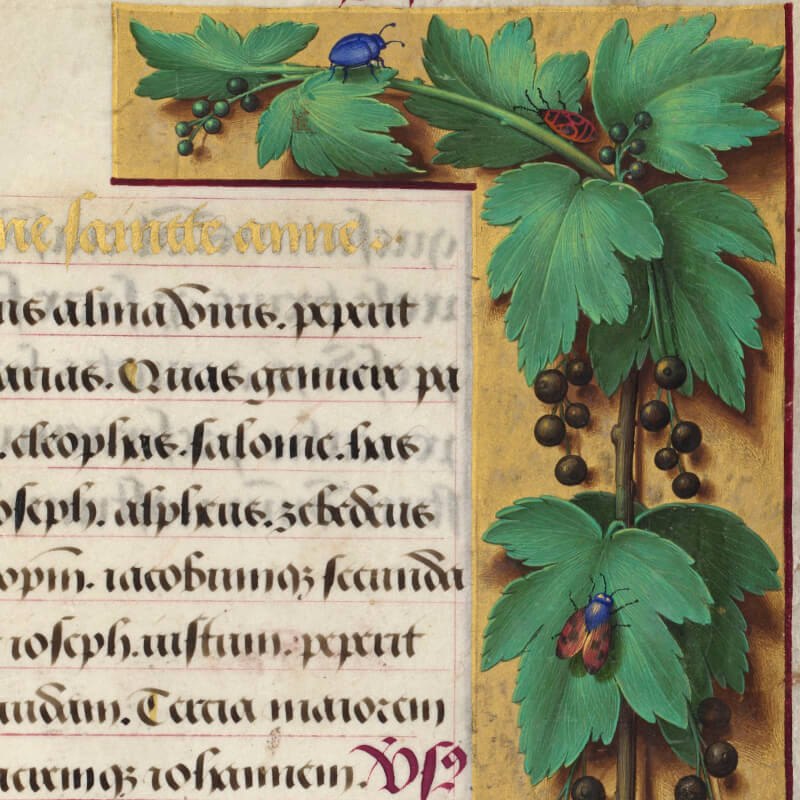 ne saincte anne.
us alma viris. peperit
arias. Quas genuere pa
. cleophas. salome. has
oseph. alpheus. zebedeus
iacobumqꝫ secunda
ioseph. iustum. peperit
Tertia maiorem
iohannem. Vsꝰ